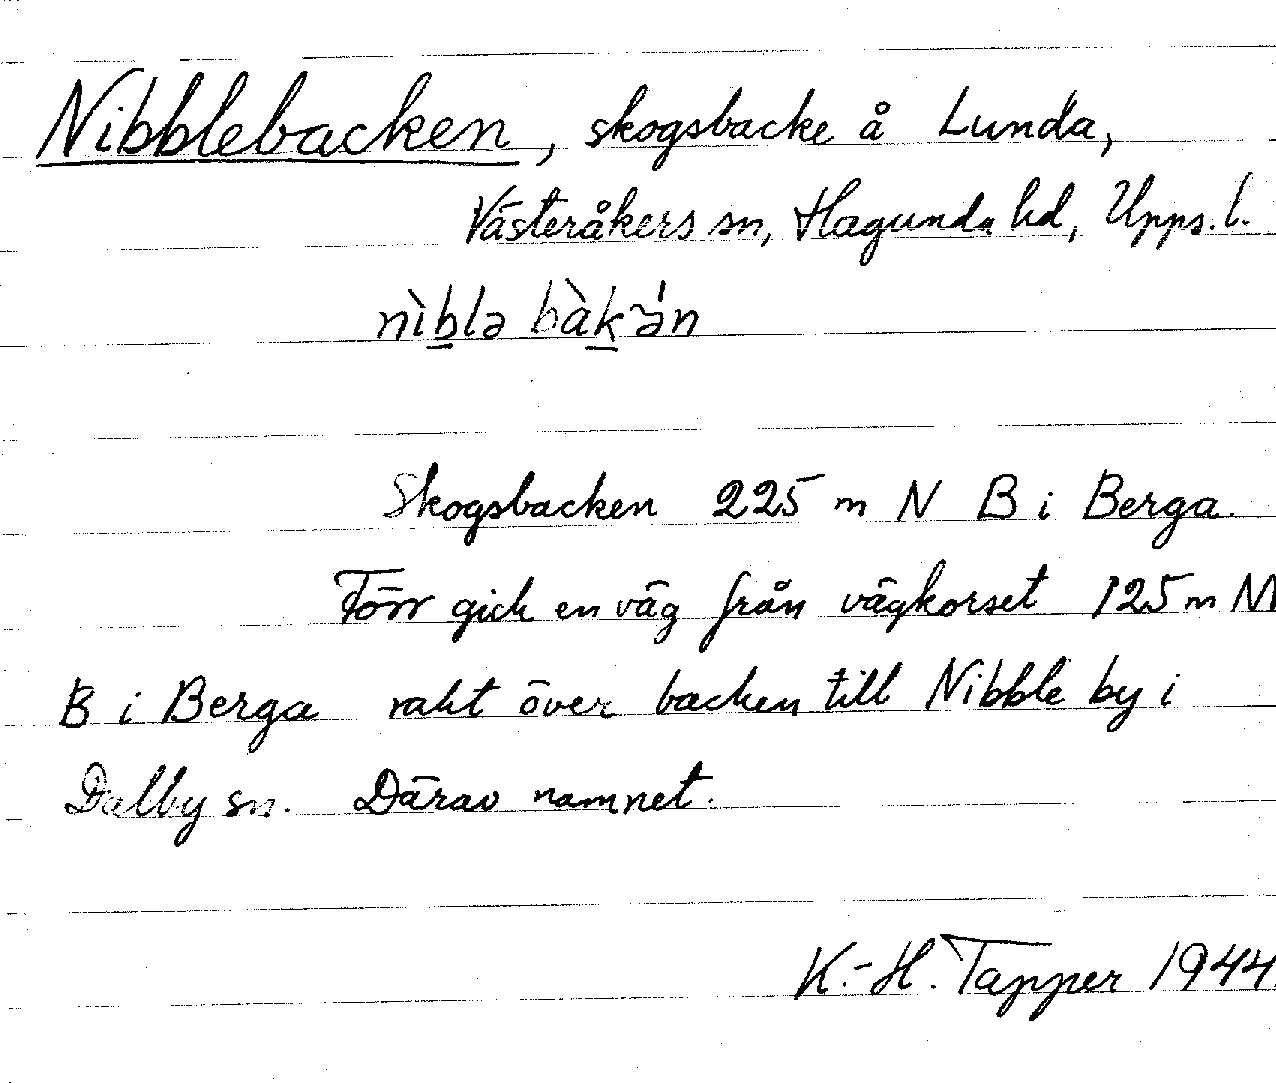 Nibblebacken, skogsbacke å Lunda,
Västeråkers sn, Hagunda hd, Upps. l.
nìblə bàk ́ən
Skogsbacken 225 m N B i Berga.
Förr gick en väg från vägkorset 125 m N
B i Berga rakt över backen till Nibble by i
Dalby sn. Därav namnet.
K.-H. Tapper 1944.